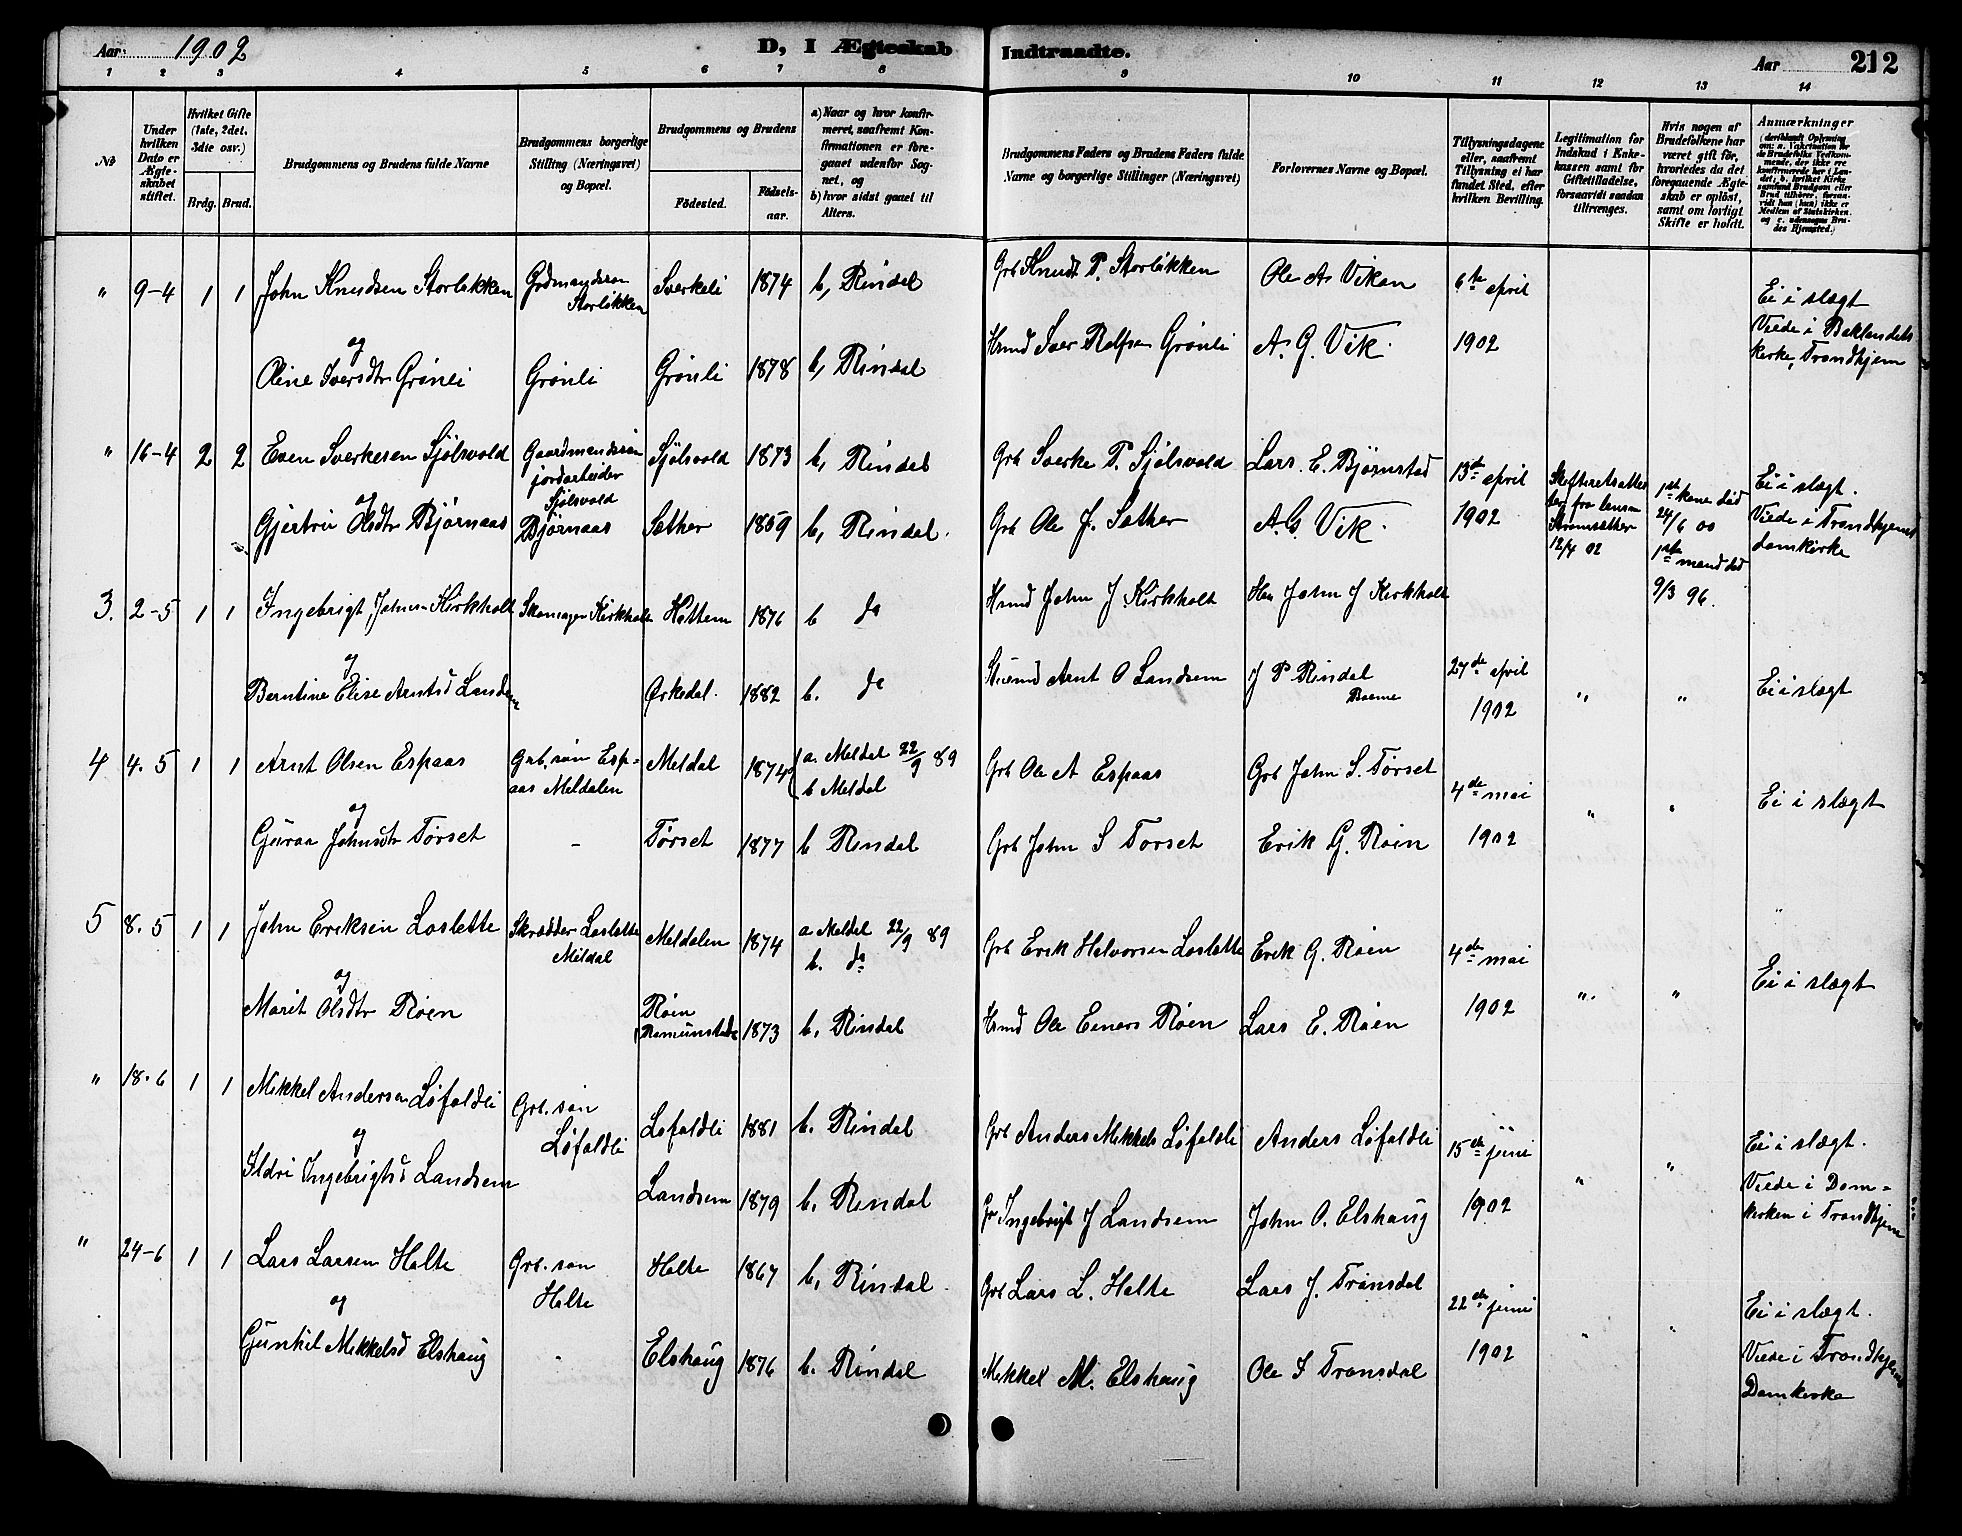 Aar 1902
D, I Ægteskab Indtraadte.
Aar 212
1 2 3 4 5 6 7 8 9 10 11 12 13 14
No
Under hvilken Dato er Ægteskabet stiftet.
Hvilket Gifte (1ste, 2det, 3die osv.)
Brdg. Brud.
Brudgommens og Brudens fulde Navne
Brudgommens borgerlige Stilling (Næringsvei) og Bopæl.
Brudgommens og Brudens
Födested. Födselsaar.
a) Naar og hvor konfirmeret, saafremt Konfirmationen er foregaaet udenfor Sognet, og
b) hvor sidst gaaet til Alters.
Brudgommens Faders og Brudens Faders fulde Navne og borgerlige Stillinger (Næringsvei)
Forlovernes Navne og Bopæl.
Tillysningsdagene eller, saafremt Tillysning ei har fundet Sted, efter hvilken Bevilling.
Legitimation for Indskud i Enkekassen samt for Giftetilladelse, forsaavidt saadan tiltrænges.
Hvis nogen af Brudefolkene har været gift för, hvorledes da det foregaaende Ægteskab er oplöst, samt om lovligt Skifte er holdt.
Anmærkninger
(deriblandt Oplysning om: a. Vakcination for de Brudefolks Vedkommende, der ikke ere konfirmerede her i Landet; b. hvilket Kirkesamfund Brudgom eller Brud tilhörer, forsaavidt han (hun) ikke er Medlem af Statskirken. og c. udensogns Brudes Hjemsted.)
" 9-4 1 1 John Knudsen Storløkken Grdmandssøn Storløkken Sverkeli 1874 b, Rindal Grb Knudt P. Storløkken Ole A. Vikan 6te april Ei i slægt
og
Oline Iversdtr Grønli Grønli Grønli 1878 b, Rindal Hsmd Iver Rolfsen Grønli A. G. Vik. 1902 Viede i Baklandets kirke, Trondhjem
" 16-4 2 2 Even Sverkesen Sjølsvold Gaardmandssøn jordarbeider Sjølsvold Sjølsvold 1873 b, Rindal Grb Sverke P. Sjølsvold Lars E. Bjørnstad 13de april Skifteretsattest fra lensm Strømsæther 12/4 02 1ste kone død 24/6 00 Ei i slægt.
og
Gjertru Olsdtr Bjørnaas Bjørnaas Sæther 1859 b, Rindal. Grb Ole J. Sæther A. G. Vik. 1902 1ste mand død 9/3 96. Viede i Trondhjems domkirke
3. 2-5 1 1 Ingebrigt Johnsen Kirkholt Skomager Kirkholt Høttem 1876 b do Hsmd John J. Kirkholt Hsm John J Kirkholt
og
Berntine Elise Arntsd Landsem Orkedal. 1882 b. do Arnt O Landsem J P Rindal 27de april 1902 " " Ei i slægt
4 4. 5 1 1 Arnt Olsen Espaas Grb. søn Espaas Meldalen Meldal 1874 a. Meldal 22/9 89 b Meldal Grb Ole A Espaas Grb John S. Tørset 4de mai " " Ei i slægt
og
Guraa Johnsdtr Tørset - Tørset 1877 b Rindal Grb John S Tørset Erik G. Røen 1902
5 8. 5 1 1 John Eriksen Loslette Skrædder Loslette Meldal Meldalen 1874 a Meldal 22/9 89 b. do Grb Erik Halvorsen Loslette Erik G. Røen 4de mai "
og
Marit Olsdtr Røen Røen 1873 b, Rindal Hsmd Ole Einers Røen Lars E. Røen 1902 " " Ei i slægt
" 18. 6 1 1 Mikkel Andersen Løfaldli Grb. søn Løfaldli Løfaldli 1881 b. Rindal Grb Anders Mikkels Løfaldli Anders Løfaldli 15de juni Ei i slægt.
og
Ildri Ingebrigtsd Landsem Landsem 1879 b. Rindal Gr Ingebrigt J Landsem John O. Elshaug 1902 " " Viede i Domkirken i Trondhjem
" 24-6 1 1 Lars Larsen Holte Grb. søn Holte Holte 1867 b, Rindal. Grb Lars L. Holte Lars J. Trønsdal 22de juni Ei i slægt.
og
Gunhil Mikkelsd Elshaug - Elshaug 1876 b. Rindal Mikkel M. Elshaug Ole I Trønsdal 1902 " " Viede i Trondhjems Domkirke